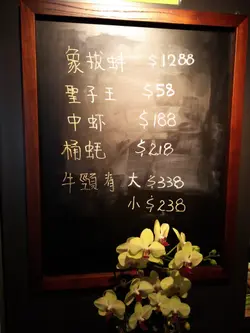 象拔蚌 $1288
聖子王 $58
中虾 $188
桶蚝 $218
牛頸脊 大 $338
小 $238